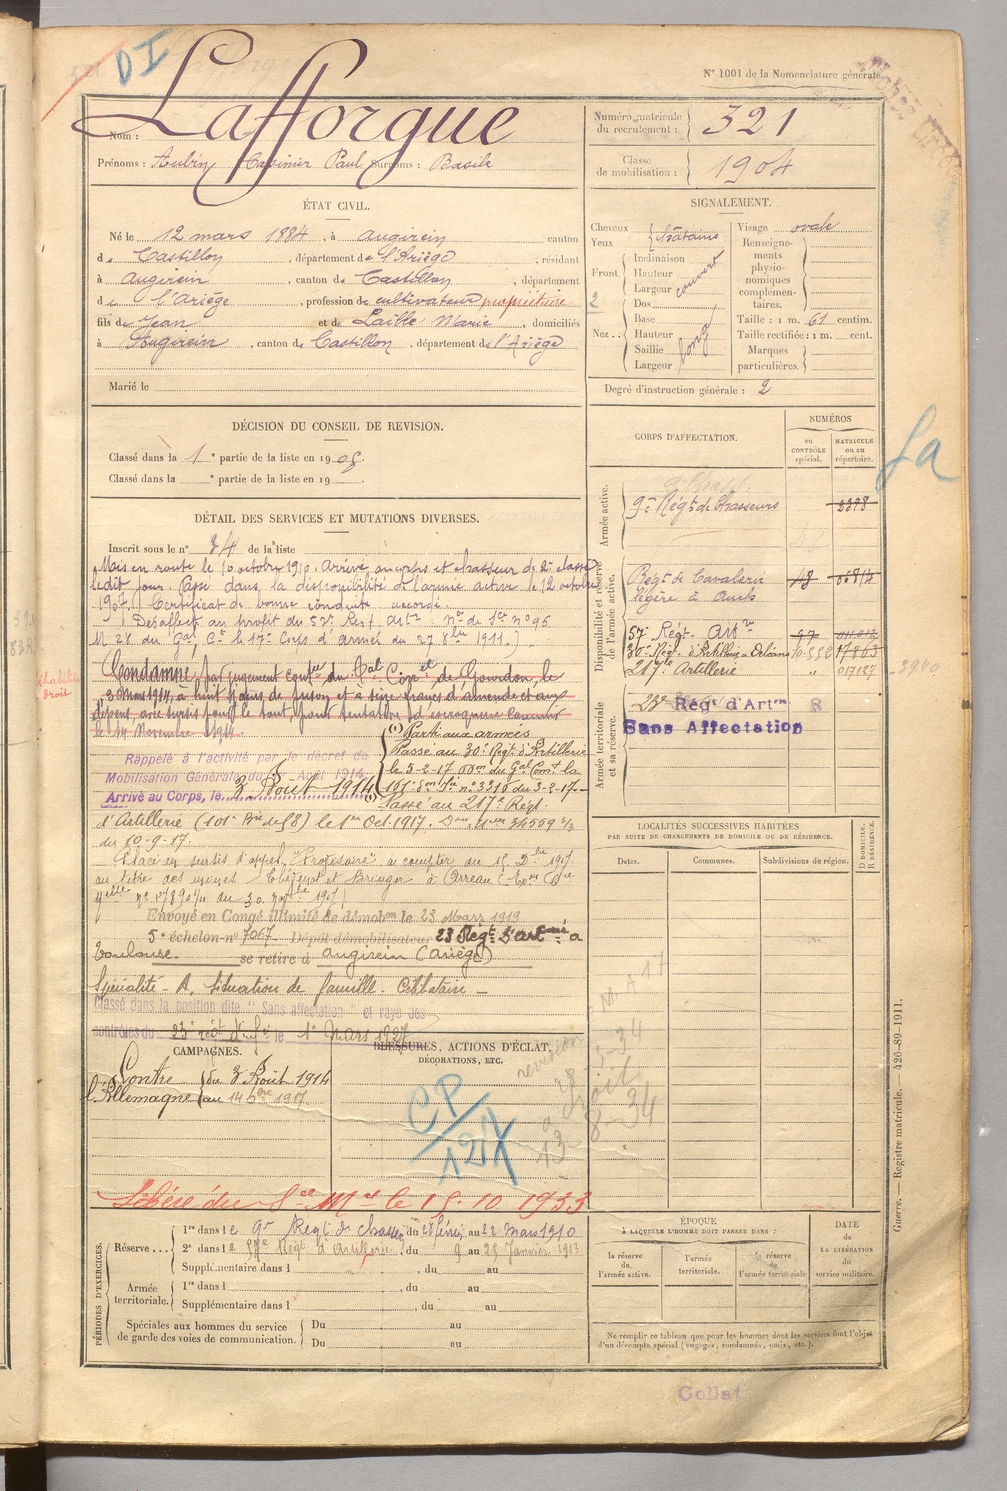 DI
N° 1001 de la Nomenclature générale.
Lafforgue
Nom :
Prénoms : Aubin Casimir Paul Surnoms : Basile
Numéro matricule du recrutement : 321
Classe de mobilisation : 1904
ÉTAT CIVIL.
Né le 12 mars 1884, à Augirein canton
de Castillon, département de l'Ariège, résidant
à Augirein, canton de Castillon, département
de l'Ariège, profession de cultivateur propriétaire
fils de Jean et de Laille Marie, domiciliés
à Augirein, canton de Castillon, département de l'Ariège
Marié le
SIGNALEMENT.
Cheveux châtains
Yeux
Front. Inclinaison
Hauteur couvert
Largeur
Nez... Dos
Base
Hauteur long
Saillie
Largeur
Visage ovale
Renseignements physionomiques complémentaires.
Taille : 1 m. 61 centim.
Taille rectifiée : 1 m. cent.
Marques particulières.
Degré d'instruction générale : 2
DÉCISION DU CONSEIL DE REVISION.
Classé dans la 1e partie de la liste en 1905.
Classé dans la e partie de la liste en 19
DÉTAIL DES SERVICES ET MUTATIONS DIVERSES.
Inscrit sous le n° 34 de la liste
Mis en route le 10 octobre 19. Arrivé au corps et chasseur de 2e classe
ledit jour. Passé dans la disponibilité de l'armée active le 12 octobre
1907. Certificat de bonne conduite accordé
Désaffecté au profit du 57e Regt Artie
du Gal Ct le 17e Corps d'armée du 27 1911.)
Condamné par jugement contre du Gal Conel de Gourdon, le
30 Mars 1914, à huit jours de prison et à seize francs d'amende et aux
dépens, avec sursis pour le tout, pour tentative d'escroquerie commise
le 14 Novembre 1911
Rappelé à l'activité par le décret de
Mobilisation Générale du Août 1914
Arrivé au Corps, le 3 Août 1914
(1) Parti aux armées
Passé au 30e Regt d'Artillerie
le 5-2-17 du Gal Comt la
n° 3310 du 3-2-17
Passé au 217e Régt
d'Artillerie (101e Bie de 58) le 1er Oct. 1917.
du 10-9-17.
Placé en sursis d'appel à compter du 15 Xbre 1917
au titre des usines à Arreau
du 30 1917
Envoyé en Congé illimité de démobon le 23 Mars 1919
5e échelon n° 7067 Dépôt démobilisateur 23 Régt D'art à
Toulouse. se retire à Augirein (Ariège)
Spécialité - A. Situation de famille. Célibataire -
Classé dans la position dite "Sans affectation" et rayé des
contrôles du 23e regt d'Art le 1er Mars 1927
CORPS D'AFFECTATION.
NUMÉROS
au CONTRÔLE spécial.
MATRICULE ou au répertoire.
Armée active.
9e Régt de Chasseurs 2378
Disponibilité et réserve de l'armée active.
Régt de Cavalerie
légère à Auch
57e Régt. Artie
30e Reg. d'Artillerie à Orléans 17863
217e Artillerie 017127
Armée territoriale et sa réserve.
23e Régt d'Artie R
Sans Affectation
LOCALITÉS SUCCESSIVES HABITÉES
PAR SUITE DE CHANGEMENTS DE DOMICILE OU DE RÉSIDENCE.
Dates.
Communes.
Subdivisions de région.
D DOMICILE.
R RÉSIDENCE.
CAMPAGNES.
Contre l'Allemagne
du 3 Août 1914
au 14 Xbre 1917
BLESSURES, ACTIONS D'ÉCLAT,
DÉCORATIONS, ETC.
CP/12X
revision
droit
à
13-8-34
Libéré du Sce Mre le 15.10.1933
PÉRIODES D'EXERCICES.
Réserve...
1re dans le 9e Régt de Chasseurs du 28 février au 22 Mars 1910
2e dans le 57e Régt d'Artillerie du 9 au 25 Janvier 1913
Supplémentaire dans l , du au
Armée territoriale.
1re dans l , du au
Supplémentaire dans l , du au
Spéciales aux hommes du service de garde des voies de communication.
Du au
Du au
ÉPOQUE
À LAQUELLE L'HOMME DOIT PASSER DANS :
la réserve de l'armée active.
l'armée territoriale.
la réserve de l'armée territoriale
DATE DE LA LIBÉRATION du service militaire.
Ne remplir ce tableau que pour les hommes dont les services font l'objet
d'un décompte spécial (engagés, condamnés, omis, etc.).
Guerre. — Registre matricule. — 426-89-1911.
Collat